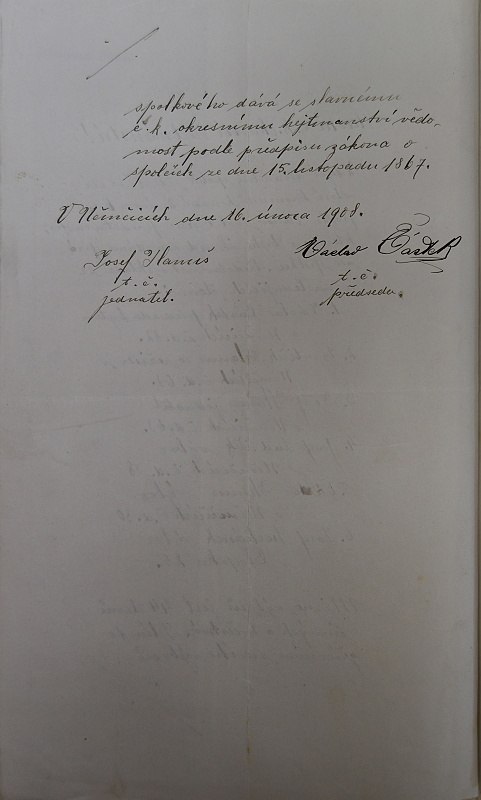 spolkového dává se slavnému
c. k. okresnímu hejtmanství vědo-
most podle předpisu zákona o
spolcích ze dne 15. listopadu 1867.
V Němčicích dne 16. února 1908.
Josef Hanuš Václav Částek
t. č. t. č.
jednatel. předseda.